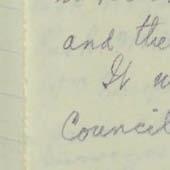 and the
It w
Council